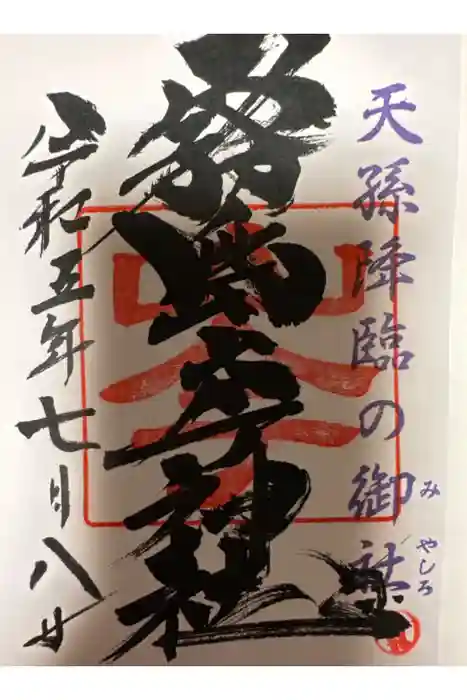 天孫降臨の御社
みやしろ
霧島岑神社
令和五年七月八日